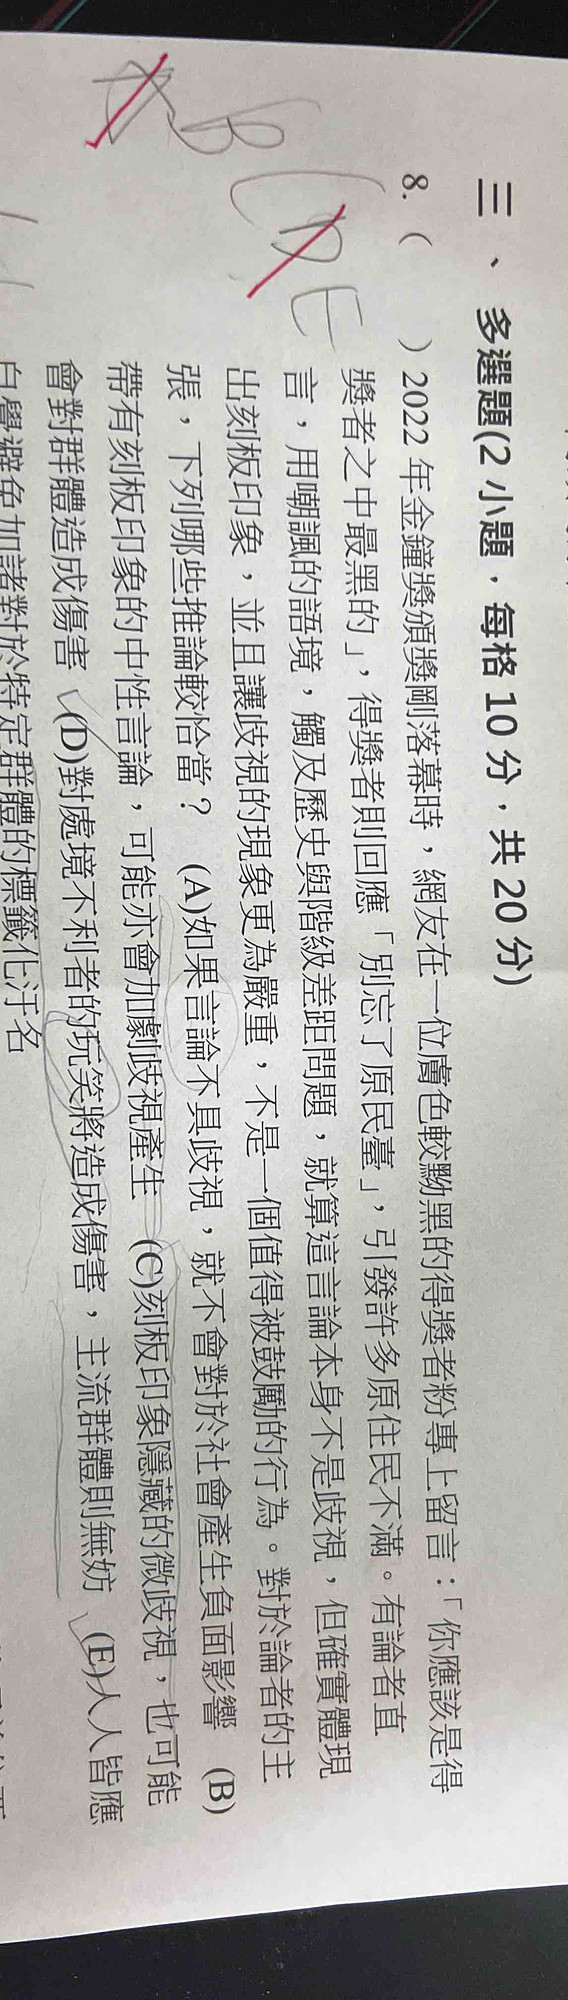 三、多選題(2 小題，每格 10 分，共 20 分)
8. (　　) 2022 年金鐘獎頒獎剛落幕時，網友在一位膚色較黝黑的得獎者粉專上留言：「你應該是得
獎者之中最黑的」，得獎者則回應「別忘了原民臺」，引發許多原住民不滿。有論者直
言，用嘲諷的語境，觸及歷史與階級差距問題，就算這言論本身不是歧視，但確實體現
出刻板印象，並且讓歧視的現象更為嚴重，不是一個值得被鼓勵的行為。對於論者的主
張，下列哪些推論較恰當？ (A)如果言論不具歧視，就不會對於社會產生負面影響 (B)
帶有刻板印象的中性言論，可能亦會加劇歧視產生 (C)刻板印象隱藏的微歧視，也可能
會對群體造成傷害 (D)對處境不利者的玩笑將造成傷害，主流群體則無妨 (E)人人皆應
自覺避免加諸對於特定群體的標籤化汙名
B C D E